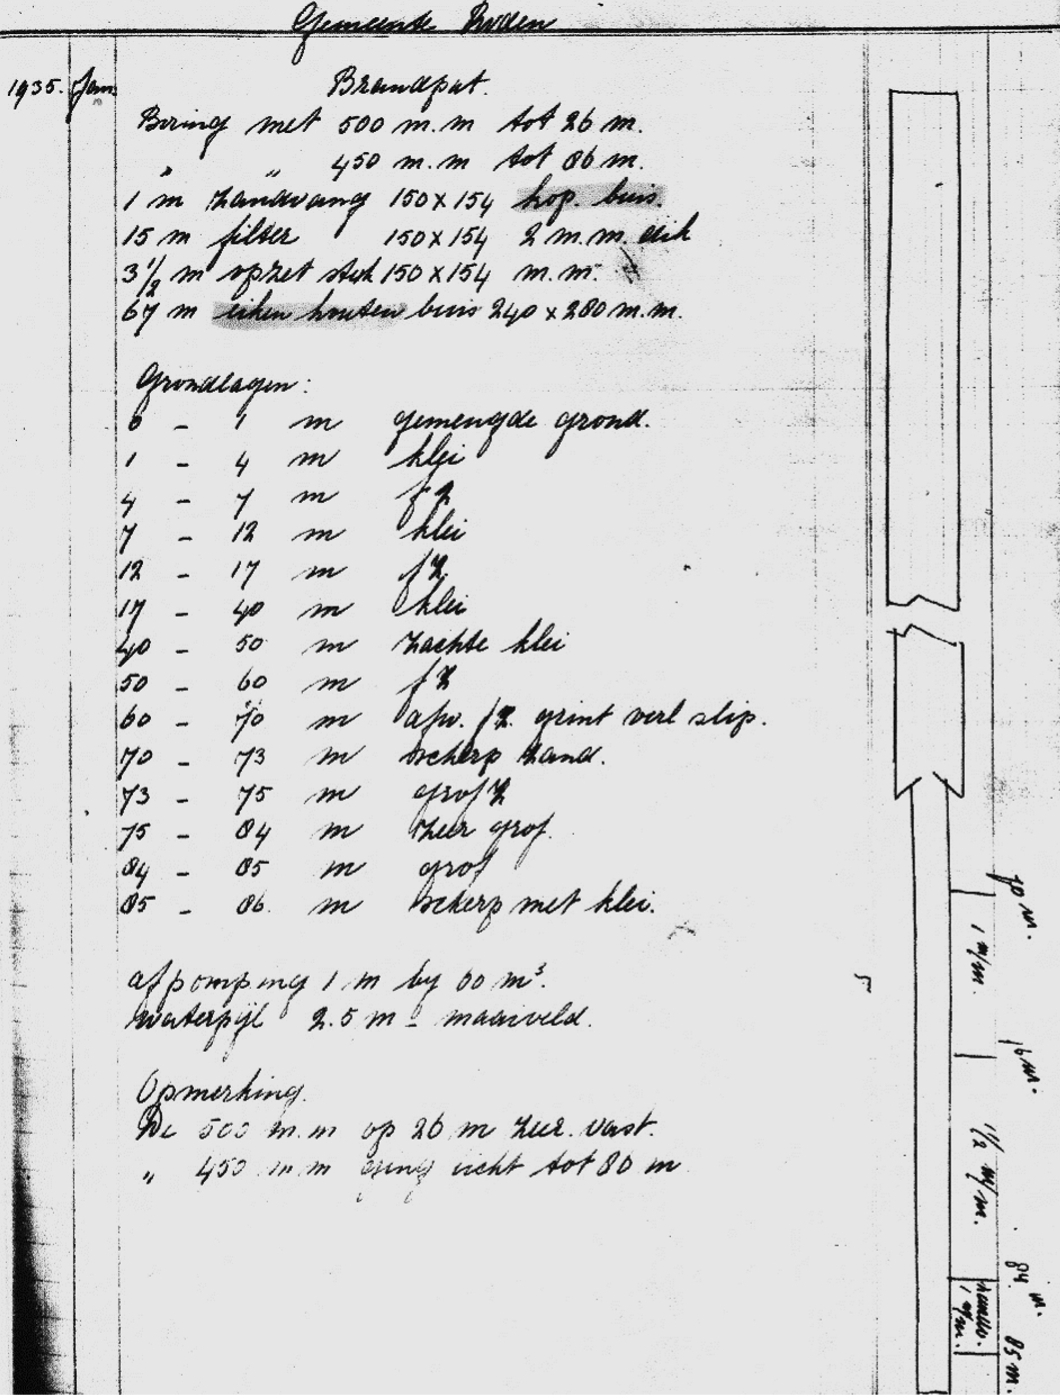 Gemeente Roden
1935. Jan.
Brandput.
Boring met 500 m.m tot 26 m.
" " 450 m.m tot 86 m.
1 m zandvang 150 x 154 kop. buis.
15 m filter 150 x 154 2 m.m. dik
3 1/2 m opzet stuk 150 x 154 m.m.
67 m eiken houten buis 240 x 280 m.m.
Grondlagen:
0 - 1 m gemengde grond.
1 - 4 m klei
4 - 7 m f z
7 - 12 m klei
12 - 17 m f z.
17 - 40 m klei
40 - 50 m zachte klei
50 - 60 m f z
60 - 70 m afw. f z. grint verl slip.
70 - 73 m scherp zand.
73 - 75 m grof z
75 - 84 m zeer grof.
84 - 85 m grof
85 - 86. m scherp met klei.
afpomping 1 m by 60 m³.
waterpijl 2.5 m - maaiveld.
Opmerking.
De 500 m.m op 26 m zeer. vast.
" 450 m m ging licht tot 80 m
70 m.
1 m/m.
76 m.
1/2 m/m.
84 m.
1 m/m.
85 m